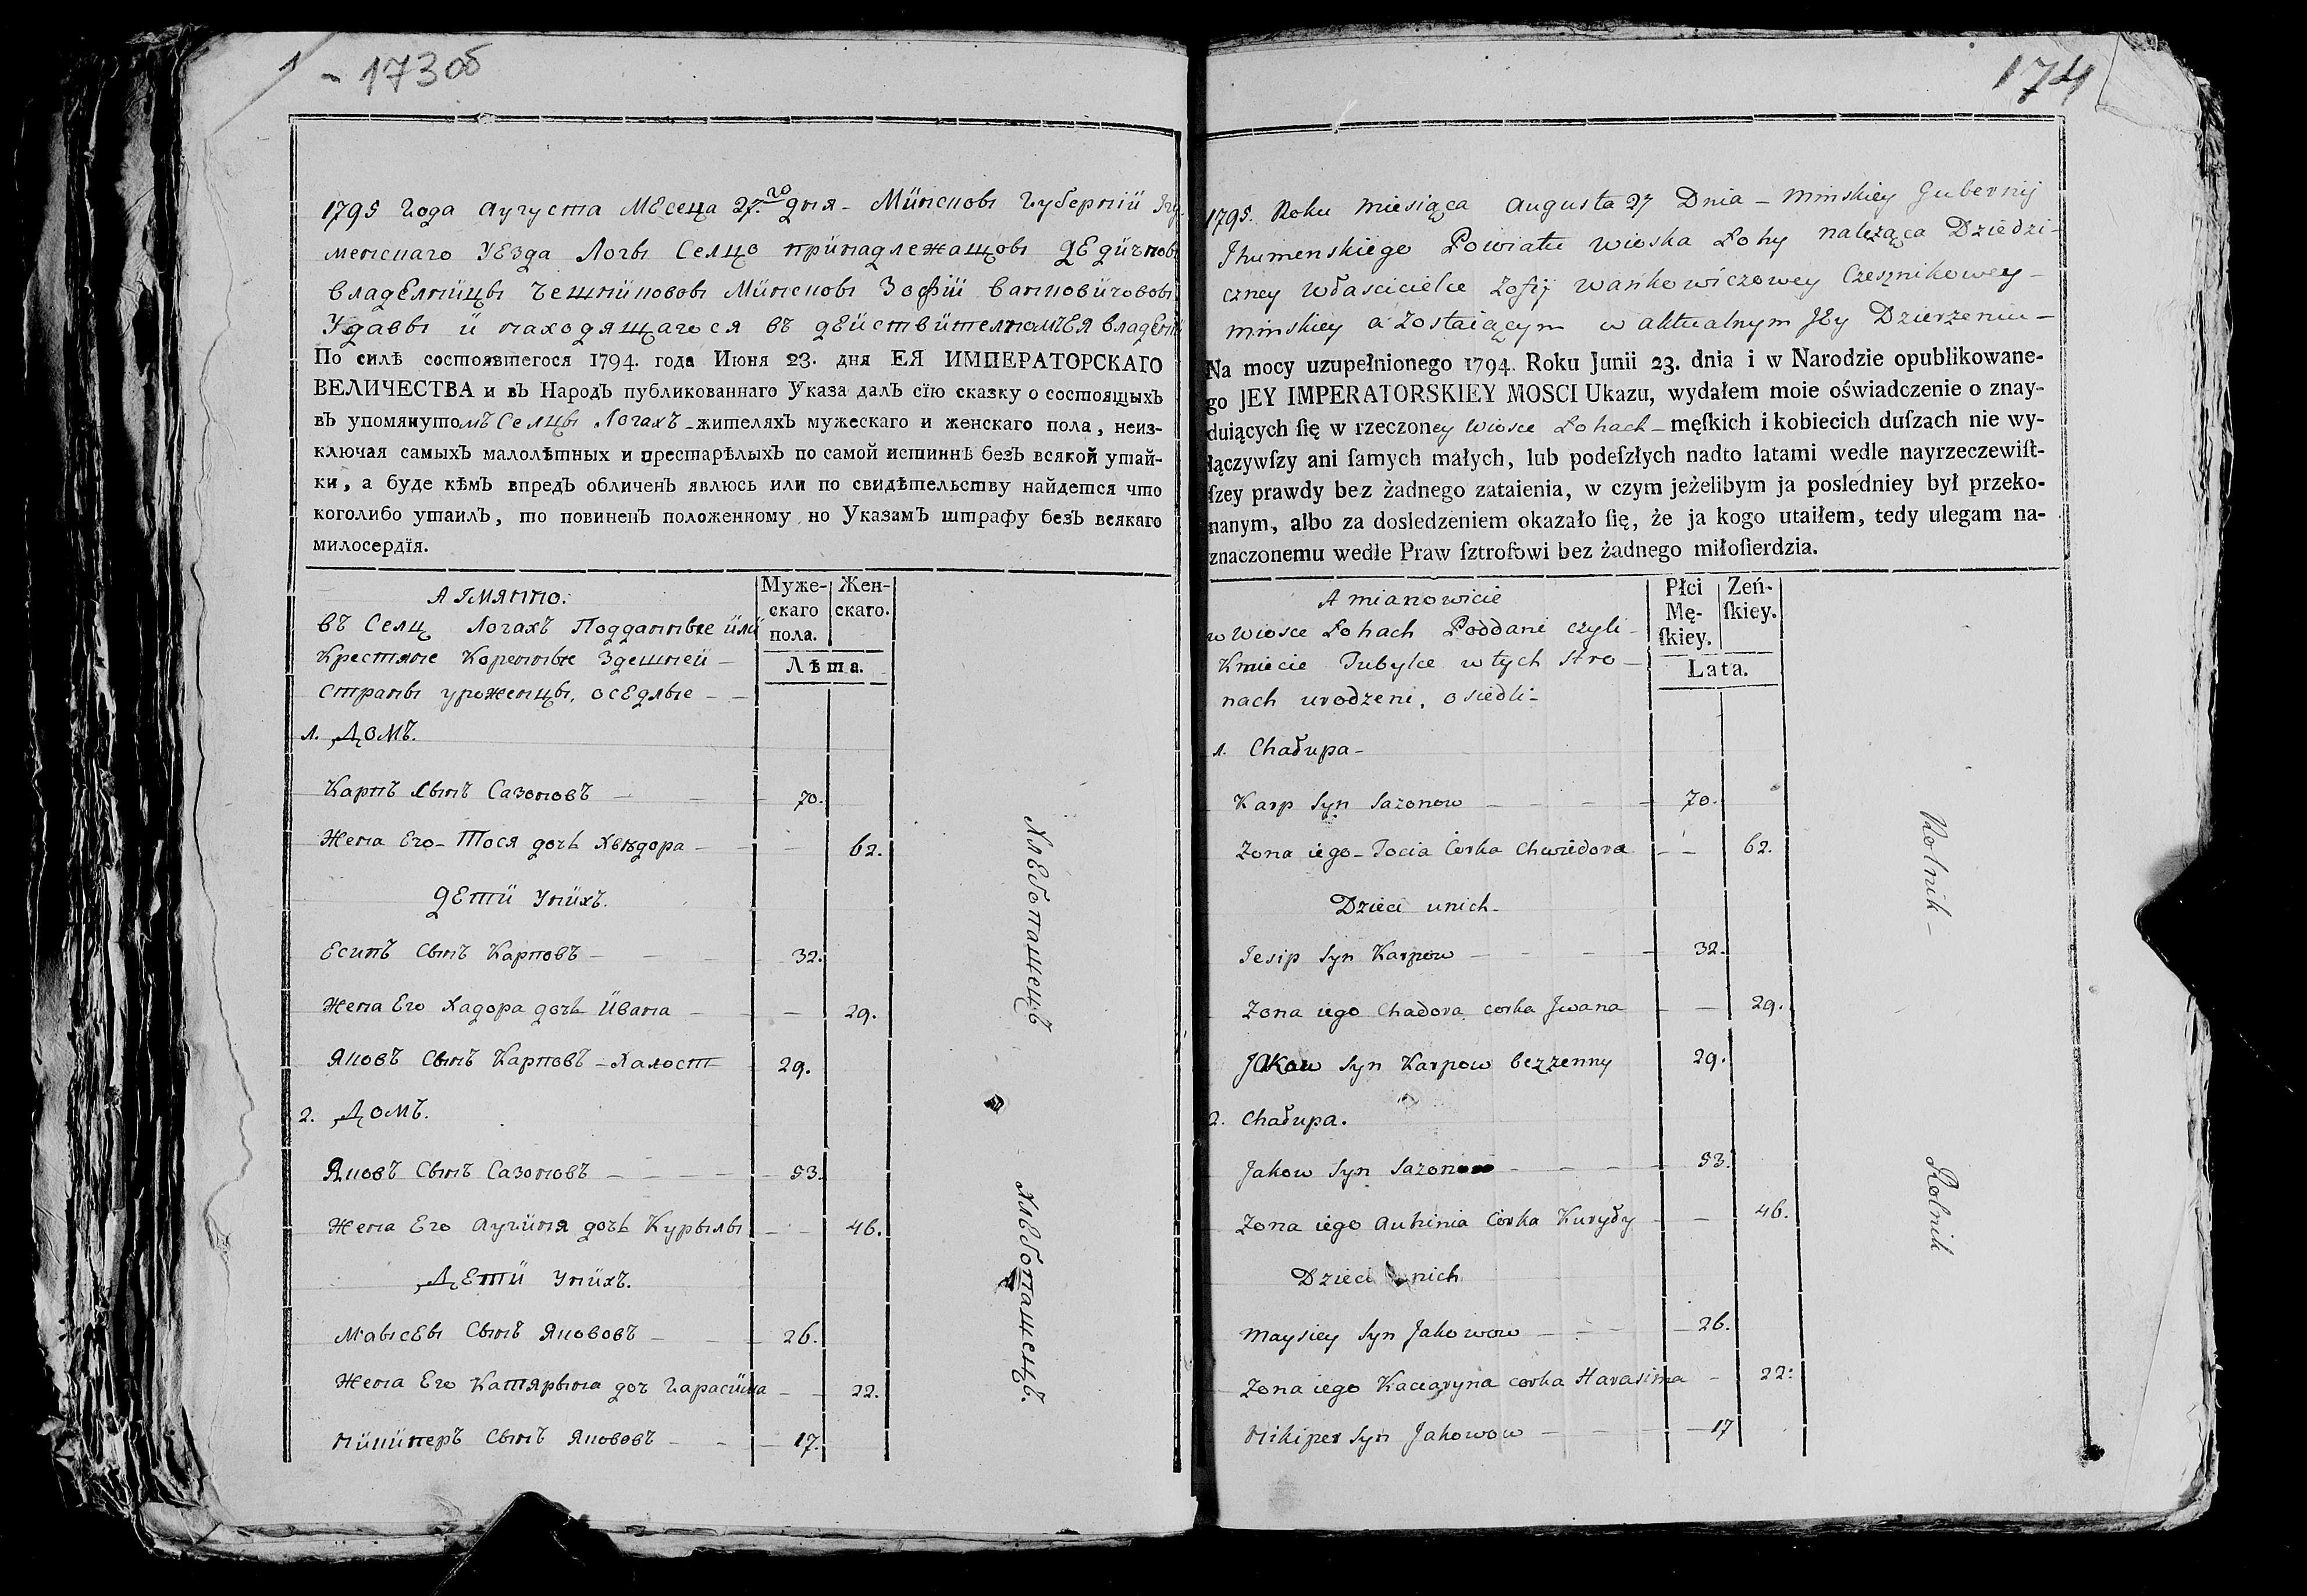 1730б
1795 Года Августа МЕсеца 27.го дня - Минской Губернии Игу-
менскаго УЕзда Логи Селцо принадлежащой дЕдичной
владЕлницы Чешниковой Минской Зофии Ванковичовой
Удавы и находящагося въ дЕйствителномъ Ея владЕнии
По силѣ состоявшегося 1794. года Июня 23. дня ЕЯ ИМПЕРАТОРСКАГО
ВЕЛИЧЕСТВА и въ Народъ публикованнаго Указа далъ сїю сказку о состоящыхъ
въ упомянутомъ Селцы Логахъ - жителяхъ мужескаго и женскаго пола, неиз-
ключая самыхъ малолѣтных и престарѣлыхъ по самой истиннѣ безъ всякой утай-
ки, а буде кѣмъ впредъ обличенъ явлюсь или по свидѣтельству найдется что
коголибо утаилъ, то повиненъ положенному по Указамъ штрафу безъ всякаго
милосердїя.
А Имянно:
въ Селц Логахъ Подданные или
Крестяне Коренные Здешней -
страны уроженцы, осЕдлые - -
Муже-
скаго
пола.
Жен-
скаго.
Лѣта.
1. Домъ.
Карпъ Сынъ Сазоновъ - - - 70.
Жена Его - Тося дочь Хвядора - - - 62.
дЕти Унихъ.
Есипъ Сынъ Карповъ - - - 32.
Жена Его Хадора дочь Ивана - - - 29.
Яковъ Сынъ Карповъ - Халост 29.
2. Домъ.
Яковъ Сынъ Сазоновъ - - - 53.
Жена Его Аугиня дочь Курылы - - 46.
ДЕти Унихъ.
Майсей Сынъ Яковoвъ - - - 26.
Жена Его Катярына доч Гарасима - - 22.
Никиперъ Сынъ Яковoвъ - - - 17.
ХлЕбопащецъ
ХлЕбопащецъ.
174
1795. Roku Miesiąca Augusta 27 Dnia - Minskiey Gubernij
Jhumenskiego Powiatu wioska Łohy należąca Dziedzi-
czney Właścicielce Zofij Wańkowiczowey Czesznikowey -
Minskiey a zostaiącym w aktualnym JEy Dzierzeniu -
Na mocy uzupełnionego 1794. Roku Junii 23. dnia i w Narodzie opublikowane-
go JEY IMPERATORSKIEY MOSCI Ukazu, wydałem moie oświadczenie o znay-
duiących ſię w rzeczoney wiosce Łohach - męſkich i kobiecich duſzach nie wy-
łączywſzy ani ſamych małych, lub podeſzłych nadto latami wedle nayrzeczewiſt-
ſzey prawdy bez żadnego zataienia, w czym jeżelibym ja posledniey był przeko-
nanym, albo za dosledzeniem okazało ſię, że ja kogo utaiłem, tedy ulegam na-
znaczonemu wedle Praw ſztrofowi bez żadnego miłoſierdzia.
A mianowicie
w wiosce Łohach Poddani czyli -
Kmiecie Tubylce w tych stro -
nach urodzeni, osiedli -
Płci
Mę-
ſkiey.
Zeń-
ſkiey.
Lata.
1. Chałupa -
Karp Syn Sazonow - - - - 70.
Zona iego - Tocia Corka Chwiedora - - 62.
Dzieci unich -
Jesip Syn Karpow - - - - 32.
Zona iego Chadora corka Jwana - - 29.
Jakow Syn Karpow bezzenny 29.
2. Chałupa.
Jakow Syn Sazonow - - - - 53.
Zona iego Auhinia Corka Kuryły - - 46.
Dzieci unich
Maysiey Syn Jakowow - - - 26.
Zona iego Kaciaryna corka Harasima - 22.
Nikiper Syn Jakowow - - - - 17
Rolnik -
Rolnik